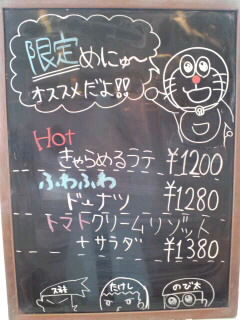 限定めにゅ〜
オススメだよ!!
Hot
きゃらめるラテ ¥1200
ふわふわ
ドーナツ ¥1280
トマトクリームリゾット
+サラダ ¥1380
スネ夫 たけし のび太